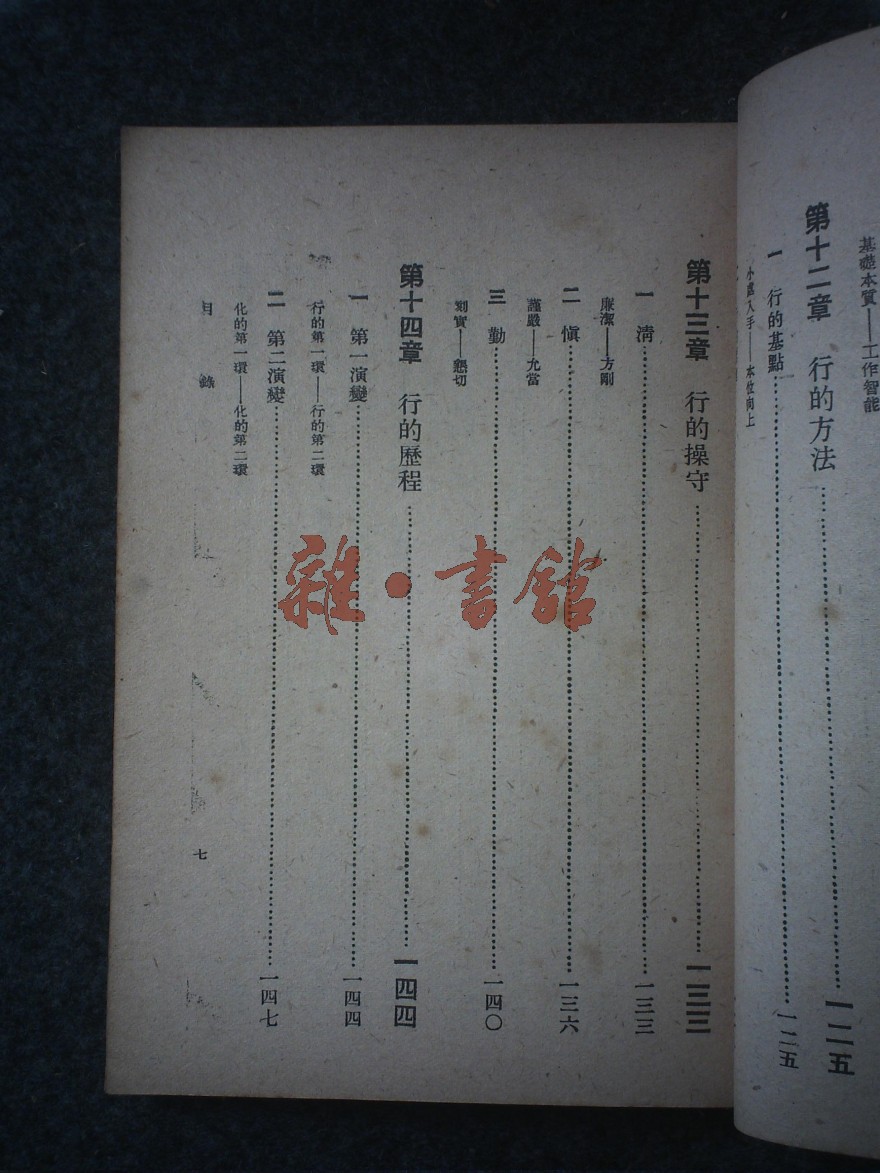 基礎本質——工作智能
第十二章 行的方法…………一二五
一 行的基點…………一二五
小處入手——本位向上
第十三章 行的操守…………一三三
一 淸…………一三三
廉潔——方剛
二 愼…………一三六
謹嚴——允當
三 勤…………一四〇
刻實——懇切
第十四章 行的歷程…………一四四
一 第一演變…………一四四
行的第一環——行的第二環
二 第二演變…………一四七
化的第一環——化的第二環
目錄
七
雜·書館